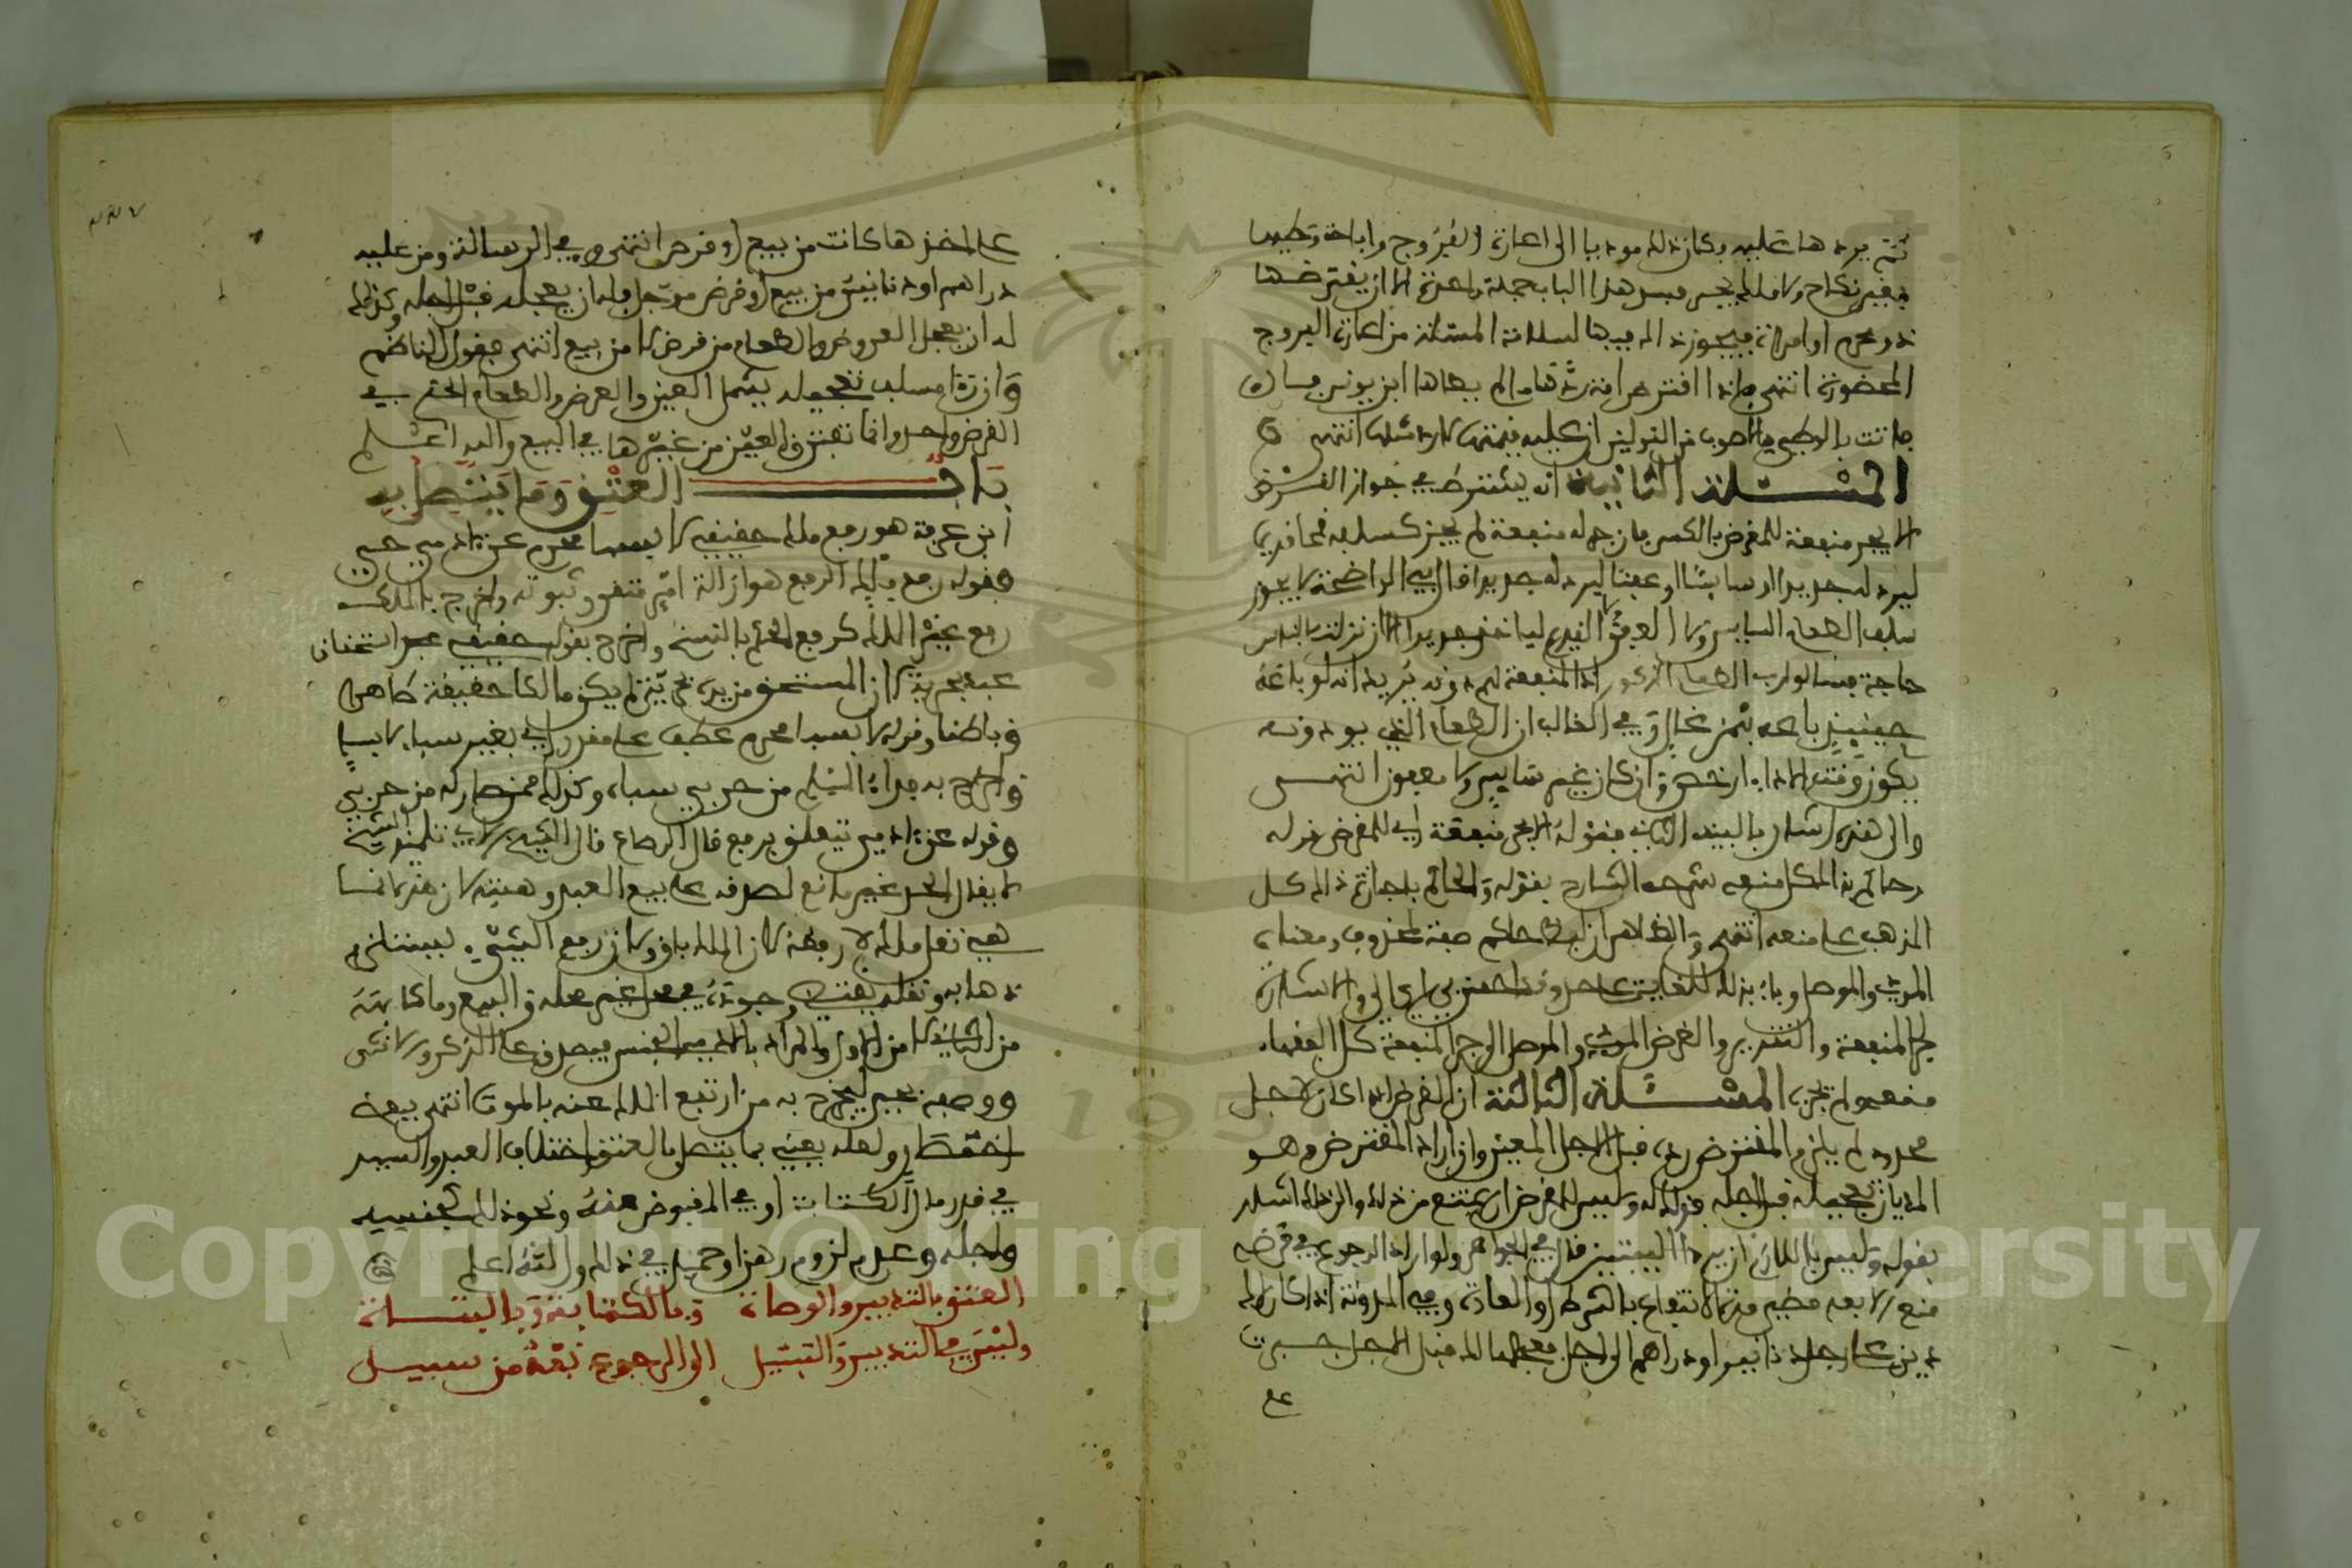 ثم يردها عليه وكان ذلك موديا الى اعارة الفروج واباحة وطيها
بغير نكاح ولا ملك يمين فيسد هذا الباب جملة واحدة الا ان يقترضها
ذو محرم او امراة فيجوز ذلك فيها لسلامة المسئلة من اعارة الفروج
المحضورة انتهى فاذا اقترض امة ردها ما لم يطاها ابن يونس فان
فاتت بالوطء فالاصوب من القولين ان عليه قيمتها لا رد مثلها انتهى
المسئلة الثانية انه يشترط في جواز القرض
الا يجر منفعة للمقرض بالكسر فان جر له منفعة لم يجز كسلفه قمحا قديما
ليرد له جديدا او سايسا او عفنا ليرد له جديدا قال في الواضحة لا يجوز
سلف الطعام السايس ولا العفن ولا القديم لياخذ جديدا الا ان نزلت بالناس
حاجة فسالوا رب الطعام المذكور اذ المنفعة لهم دونه يريد انه لو باعه
حينئذ باعه بثمن غال وفي الغالب ان الطعام الذي يودونه
يكون وقت الاداء ارخص وان كان غير سايس ولا معفون انتهى
والى هذه اشار بالبيت الثاني فقوله الا يجر منفعة اي للمقرض قوله
وحاكم بذاك كل منعه شرحه الشارح بقوله والحاكم باجازة ذلك كل
المذهب على منعه انتهى والظاهر ان لفظ حاكم صفة لمحذوف ومعناه
المودي والموصل وباء بذاك للغاية على حد وقد احسن بي اي الي والاشارة
لجر المنفعة والتقدير والقرض المودي والموصل الى جر المنفعة كل الفقهاء
منعه ولم يجزه المسئلة الثالثة ان القرض اذا كان لاجل
محدود لم يلزم المقترض رده قبل الاجل المعين وان اراد المقترض وهو
المديان تعجيله قبل اجله فذلك له وليس للمقرض ان يمتنع من ذلك والى ذلك اشار
بقوله وليس باللازم ان يردا البيتين قال في الجواهر ولو اراد الرجوع في قرضه
منع الا بعد مضي مدة الانتفاع بالشرط او العادة وفي المدونة اذا كان لك
دين على رجل دنانير او دراهم الى اجل فعجلها لك قبل الاجل جبرت
على
على اخذها كانت من بيع او قرض انتهى وفي الرسالة ومن عليه
دراهم او دنانير من بيع او قرض موجل فله ان يعجله قبل اجله وكذلك
له ان يعجل العروض والطعام من قرض لا من بيع انتهى فقول الناظم
وان راى مسلف تعجيله يشمل العين والعرض والطعام الحكم في
القرض واحد وانما تفترق العين من غيرها في البيع والله اعلم
باب العتق وما يتصل به
ابن عرفة هو رفع ملك حقيقي لا بسباء محرم عن ادمي حي
فقوله رفع ملك الرفع هو ازالة امر متقرر ثبوته واخرج بالملك
رفع غير الملك كرفع الحكم بالنسخ واخرج بقوله حقيقي عبر استحقاق
عبد بحرية لان المستحق من يده بحرية لم يكن مالكا حقيقة ظاهرا
وباطنا وقوله لا بسباء محرم عطف على مقدر اي بغير سباء لا بسباء
واخرج به فداء المسلم من حربي سباه وكذلك ممن صار له من حربي
وقوله عن ادمي يتعلق برفع قال الرصاع قال الشيخ الابي تلميذ الشيخ
لا يقال الحد غير مانع لصدقه على بيع العبد وهبته لان هذا انما
هي نقل ملك لا رفعه لان الملك باق ولان رفع الشيء يستلزم
ذهابه ونقله يقتضي وجوده في محل غير محله والبيع وما كان منه
من الثاني لا من الاول والمراد بالادمي الجنس فيصدق على الذكر والانثى
ووصفه بحي ليخرج به من ارتفع الملك عنه بالموت انتهى بعضه
باختصار ولعله يعني بما يتصل بالعتق اختلاف العبد والسيد
في قدر مال الكتابة او في المقبوض منه ونحو ذلك كجنسه
واجله وعدم لزوم رهن او حميل في ذلك والله اعلم
العتق بالتدبير والوصاة وبالكتابة وبالبتات
وليس في التدبير والتبتيل الى الرجوع بعد من سبيل